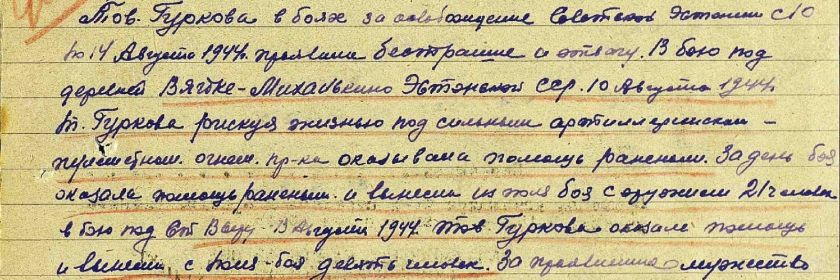 Тов. Гуркова в боях за освобождение Советской Эстонии с 10
по 14 Августа 1944г. проявила бестрашие и отвагу. В бою под
деревней Вяйке-Михалькино Эстонской ССР. 10 Августа 1944г.
т. Гуркова рискуя жизнью под сильным артиллерийским -
пулеметным огнем. пр-ка оказывала помощь раненым. За день боя
оказала помощь раненым. и вынесла из поля боя с оружием 21 человек
в бою под Выру 13 Августа 1944г. тов Гуркова оказала помощь
и вынесла с поля боя девять человек. За проявленно мужество